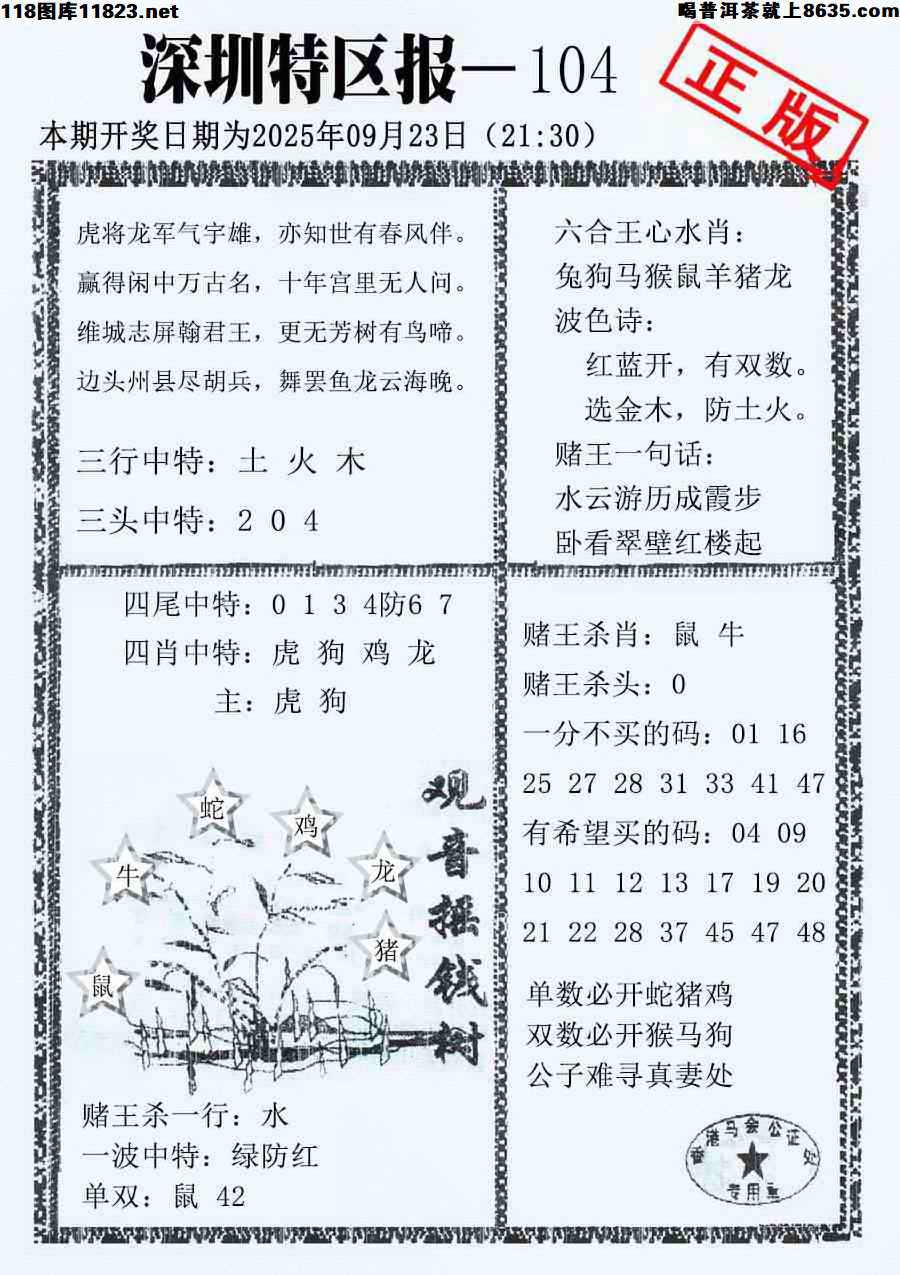 118图库11823.net
喝普洱茶就上8635.com
深圳特区报—104
正版
本期开奖日期为2025年09月23日（21:30）
虎将龙军气宇雄，亦知世有春风伴。
赢得闲中万古名，十年宫里无人问。
维城志屏翰君王，更无芳树有鸟啼。
边头州县尽胡兵，舞罢鱼龙云海晚。
三行中特：土 火 木
三头中特：2 0 4
六合王心水肖：
兔狗马猴鼠羊猪龙
波色诗：
红蓝开，有双数。
选金木，防土火。
赌王一句话：
水云游历成霞步
卧看翠壁红楼起
四尾中特：0 1 3 4防6 7
四肖中特：虎 狗 鸡 龙
主：虎 狗
观音摇钱树
蛇
鸡
牛
龙
猪
鼠
赌王杀一行：水
一波中特：绿防红
单双：鼠 42
赌王杀肖：鼠 牛
赌王杀头：0
一分不买的码：01 16
25 27 28 31 33 41 47
有希望买的码：04 09
10 11 12 13 17 19 20
21 22 28 37 45 47 48
单数必开蛇猪鸡
双数必开猴马狗
公子难寻真妻处
香港马会公证处
专用章